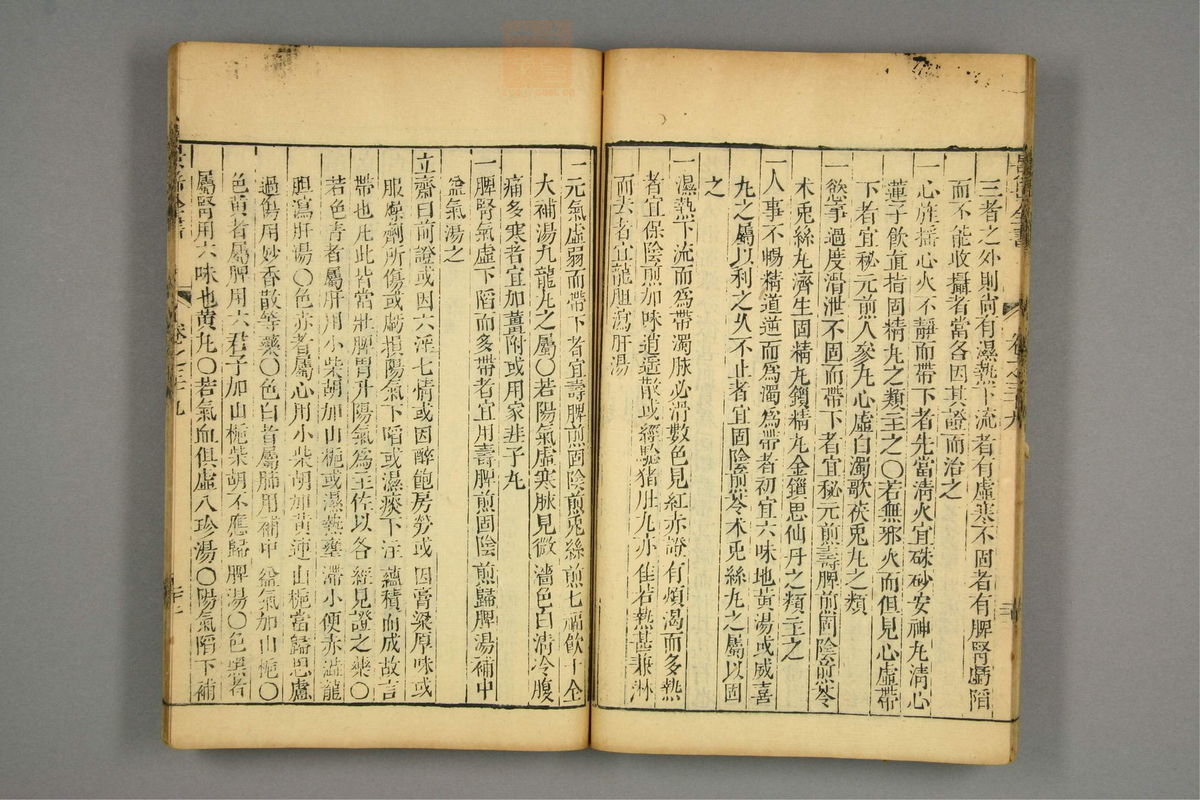 三者之外則尚有濕熱下流者有虛寒不固者有脾腎虧陷
而不能收攝者當各因其證而治之
一心旌搖心火不靜而帶下者先當清火宜硃砂安神丸清心
蓮子飲直指固精丸之類主之〇若無邪火而但見心虛帶
下者宜秘元煎人參丸心虛白濁歌茯兎丸之類
一慾事過度滑泄不固而帶下者宜秘元煎壽脾煎固陰煎苓
术兎絲丸濟生固精丸鎖精丸金鎖思仙丹之類主之
一人事不暢精道逆而為濁為帶者初宜六味地黃湯或威喜
丸之屬以利之久不止者宜固陰煎苓术兎絲丸之屬以固
之
一濕熱下流而為帶濁脉必滑數色見紅赤證有煩渴而多熱
者宜保陰煎加味逍遙散或經驗猪肚丸亦佳若熱甚兼淋
而去者宜龍胆瀉肝湯
景岳全書
卷之三十九
一元氣虛弱而帶下者宜壽脾煎固陰煎兎絲煎七福飲十全
大補湯九龍丸之屬〇若陽氣虛寒脉見微濇色白清冷腹
痛多寒者宜加薑附或用家韭子丸
一脾腎氣虛下陷而多帶者宜用壽脾煎固陰煎歸脾湯補中
益氣湯之
立齋曰前證或因六淫七情或因醉飽房勞或因膏粱厚味或
服燥劑所傷或虧損陽氣下陷或濕痰下注蘊積而成故言
帶也凡此皆當壯脾胃升陽氣為主佐以各經見證之藥〇
若色青者屬肝用小柴胡加山梔或濕熱壅滯小便赤澁龍
胆瀉肝湯〇色赤者屬心用小柴胡加黃連山梔當歸思慮
過傷用妙香散等藥〇色白者屬肺用補中益氣加山梔〇
色黃者屬脾用六君子加山梔柴胡不應歸脾湯〇色黑者
屬腎用六味地黃丸〇若氣血俱虛八珍湯〇陽氣陷下補
景岳全書
卷之三十九